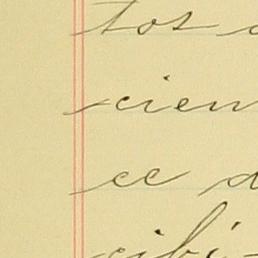 tos
cien
ce d
cibi